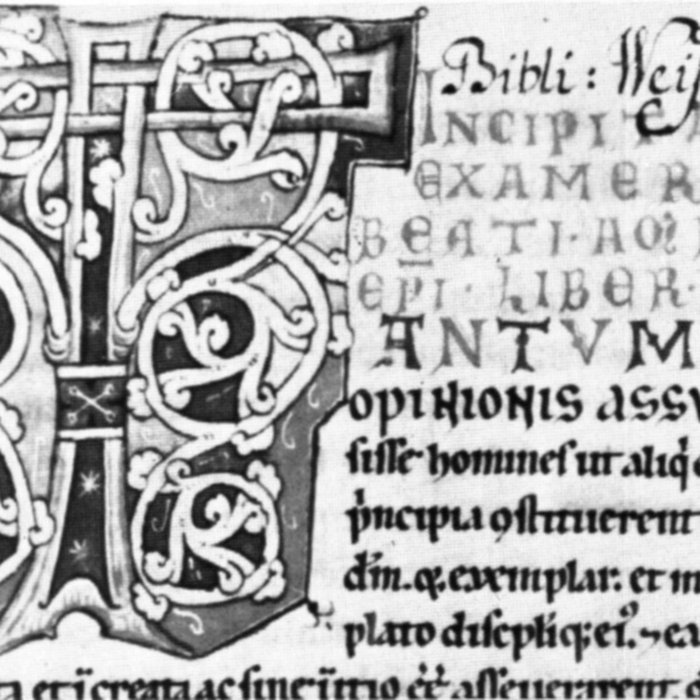 Bibli: Wei
INCIPIT
EXAMER
BEATI·A
EPI·LIBER·
TANTVM
OPINIONIS ASSV
sisse homines ut aliq
pncipia ɔstituerent
dm. &. exemplar. et m
plato discipliq; ei.
et i creata ac sine initio ee asseuerarent